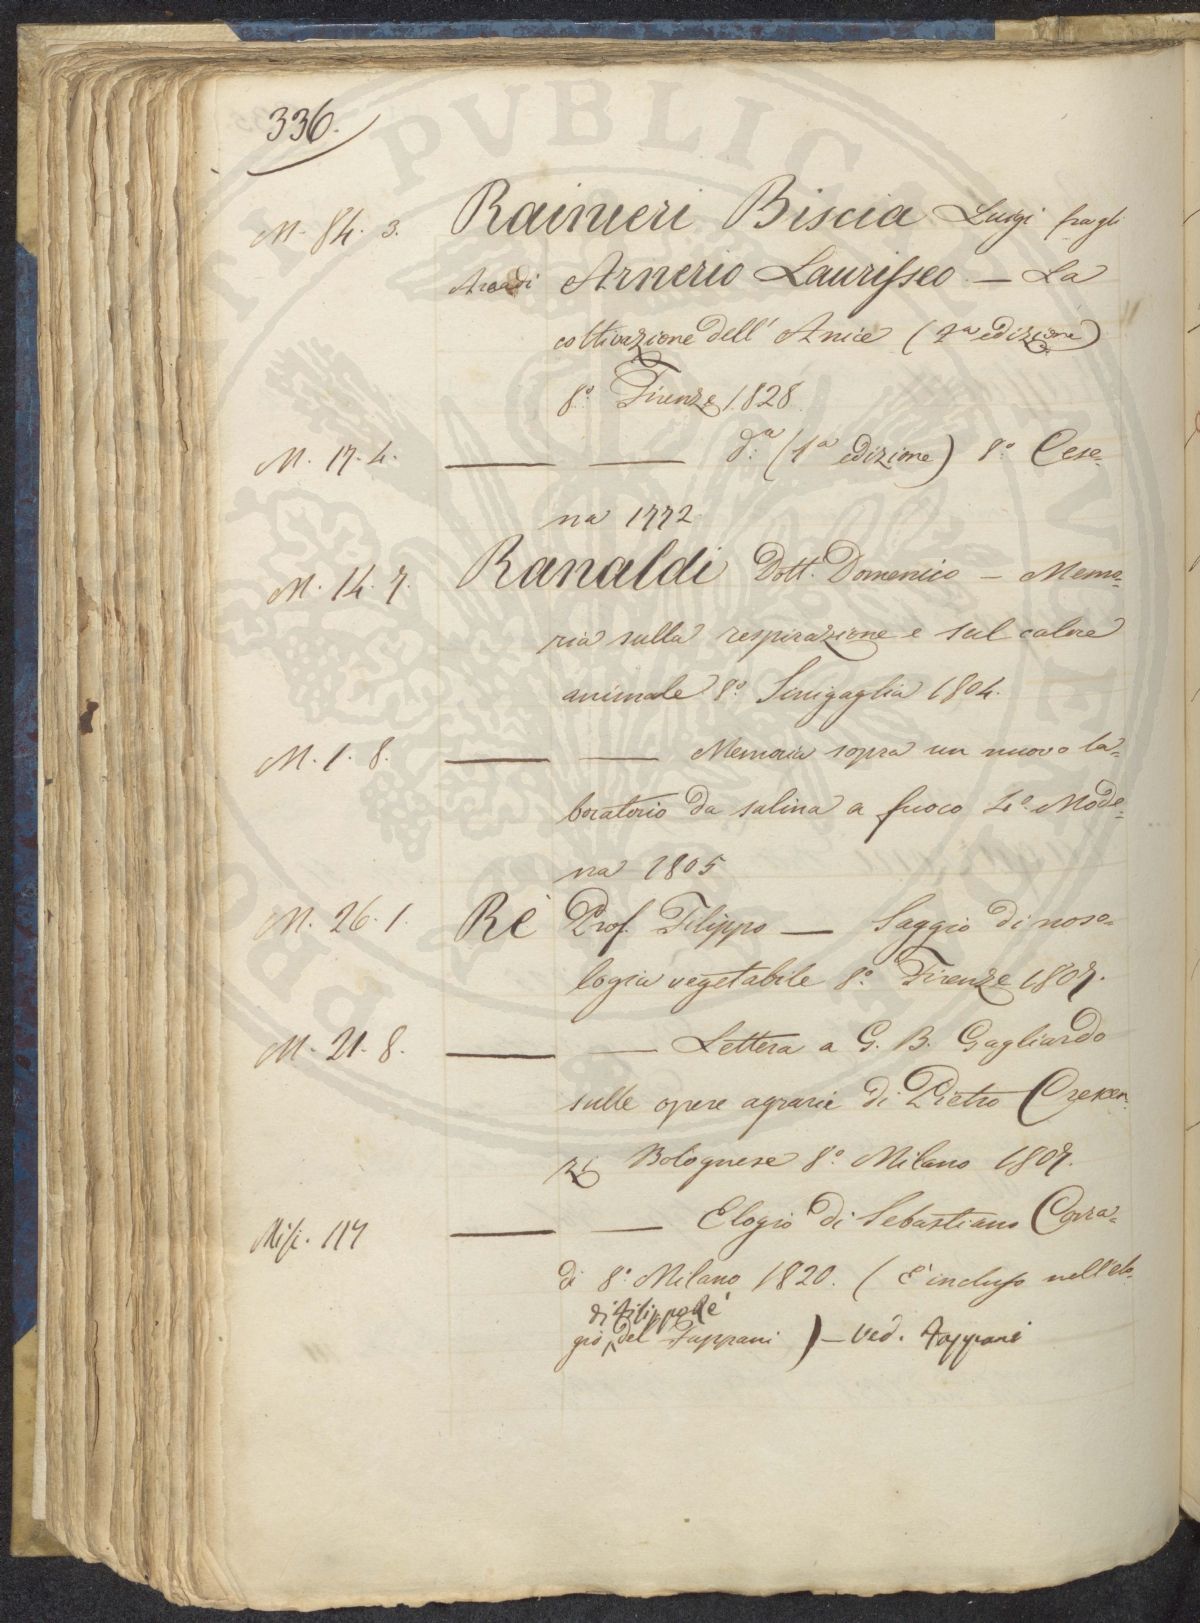 336.
M. 84. 3. Rainieri Biscia Luigi fra gli
Arcadi Arnerio Laurisseo — La
coltivazione dell' Anice (2ª edizione)
8.º Firenze 1828
M. 17. 4. —— —— d.ª (1ª edizione) 8.º Cese-
na 1772
M. 14. 7. Ranaldi Dott. Domenico — Memo-
ria sulla respirazione e sul calore
animale 8.º Sinigaglia 1804.
M. 1. 8. —— —— Memoria sopra un nuovo la-
boratorio da salina a fuoco 4.º Mode-
na 1805
M. 26. 1. Rè Prof. Filippo — Saggio di noso-
logia vegetabile 8.º Firenze 1807.
M. 21. 8. —— —— Lettera a G. B. Gagliardo
sulle opere agrarie di Pietro Crescen-
zi Bolognese 8.º Milano 1807.
Miss. 117 —— —— Elogio di Sebastiano Corra-
di 8.º Milano 1820. (È incluso nell'elo-
di Filippo Rè
gio del Fappani) — Ved. Fappani